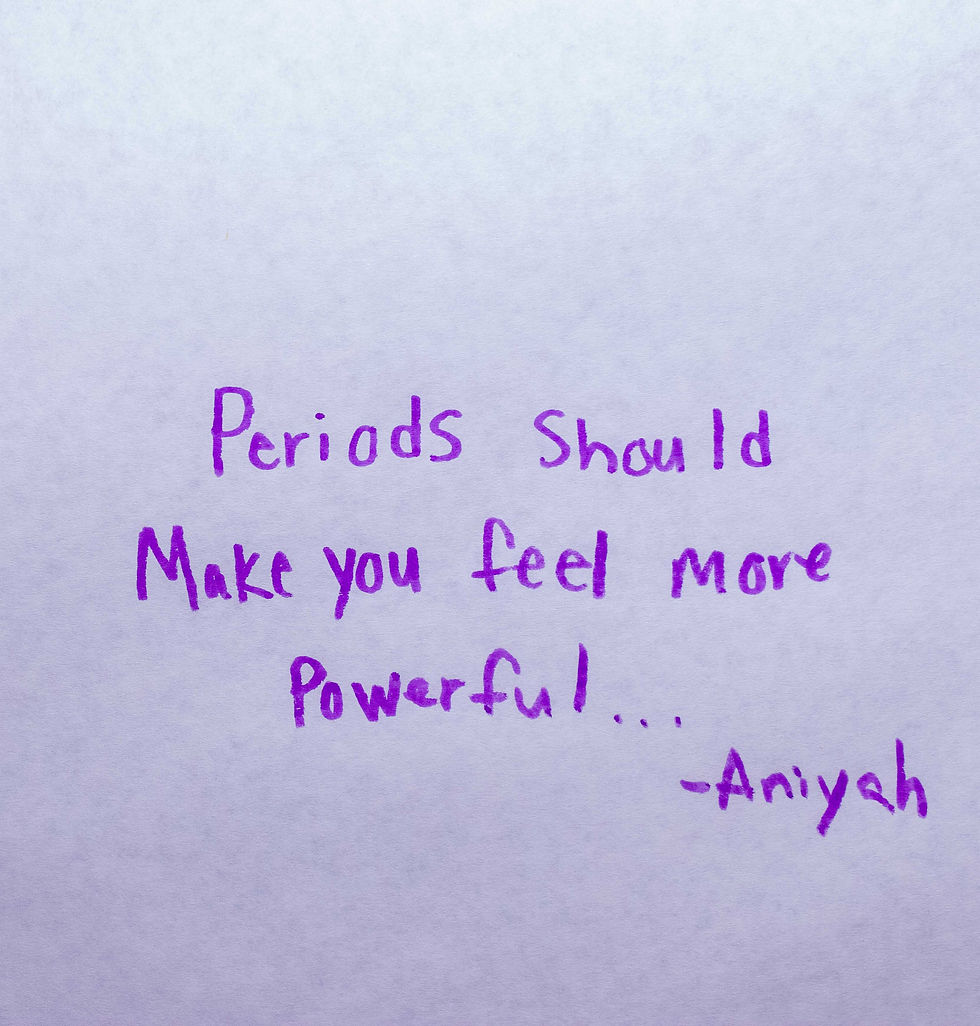 Periods Should
Make you feel more
Powerful...
-Aniyah